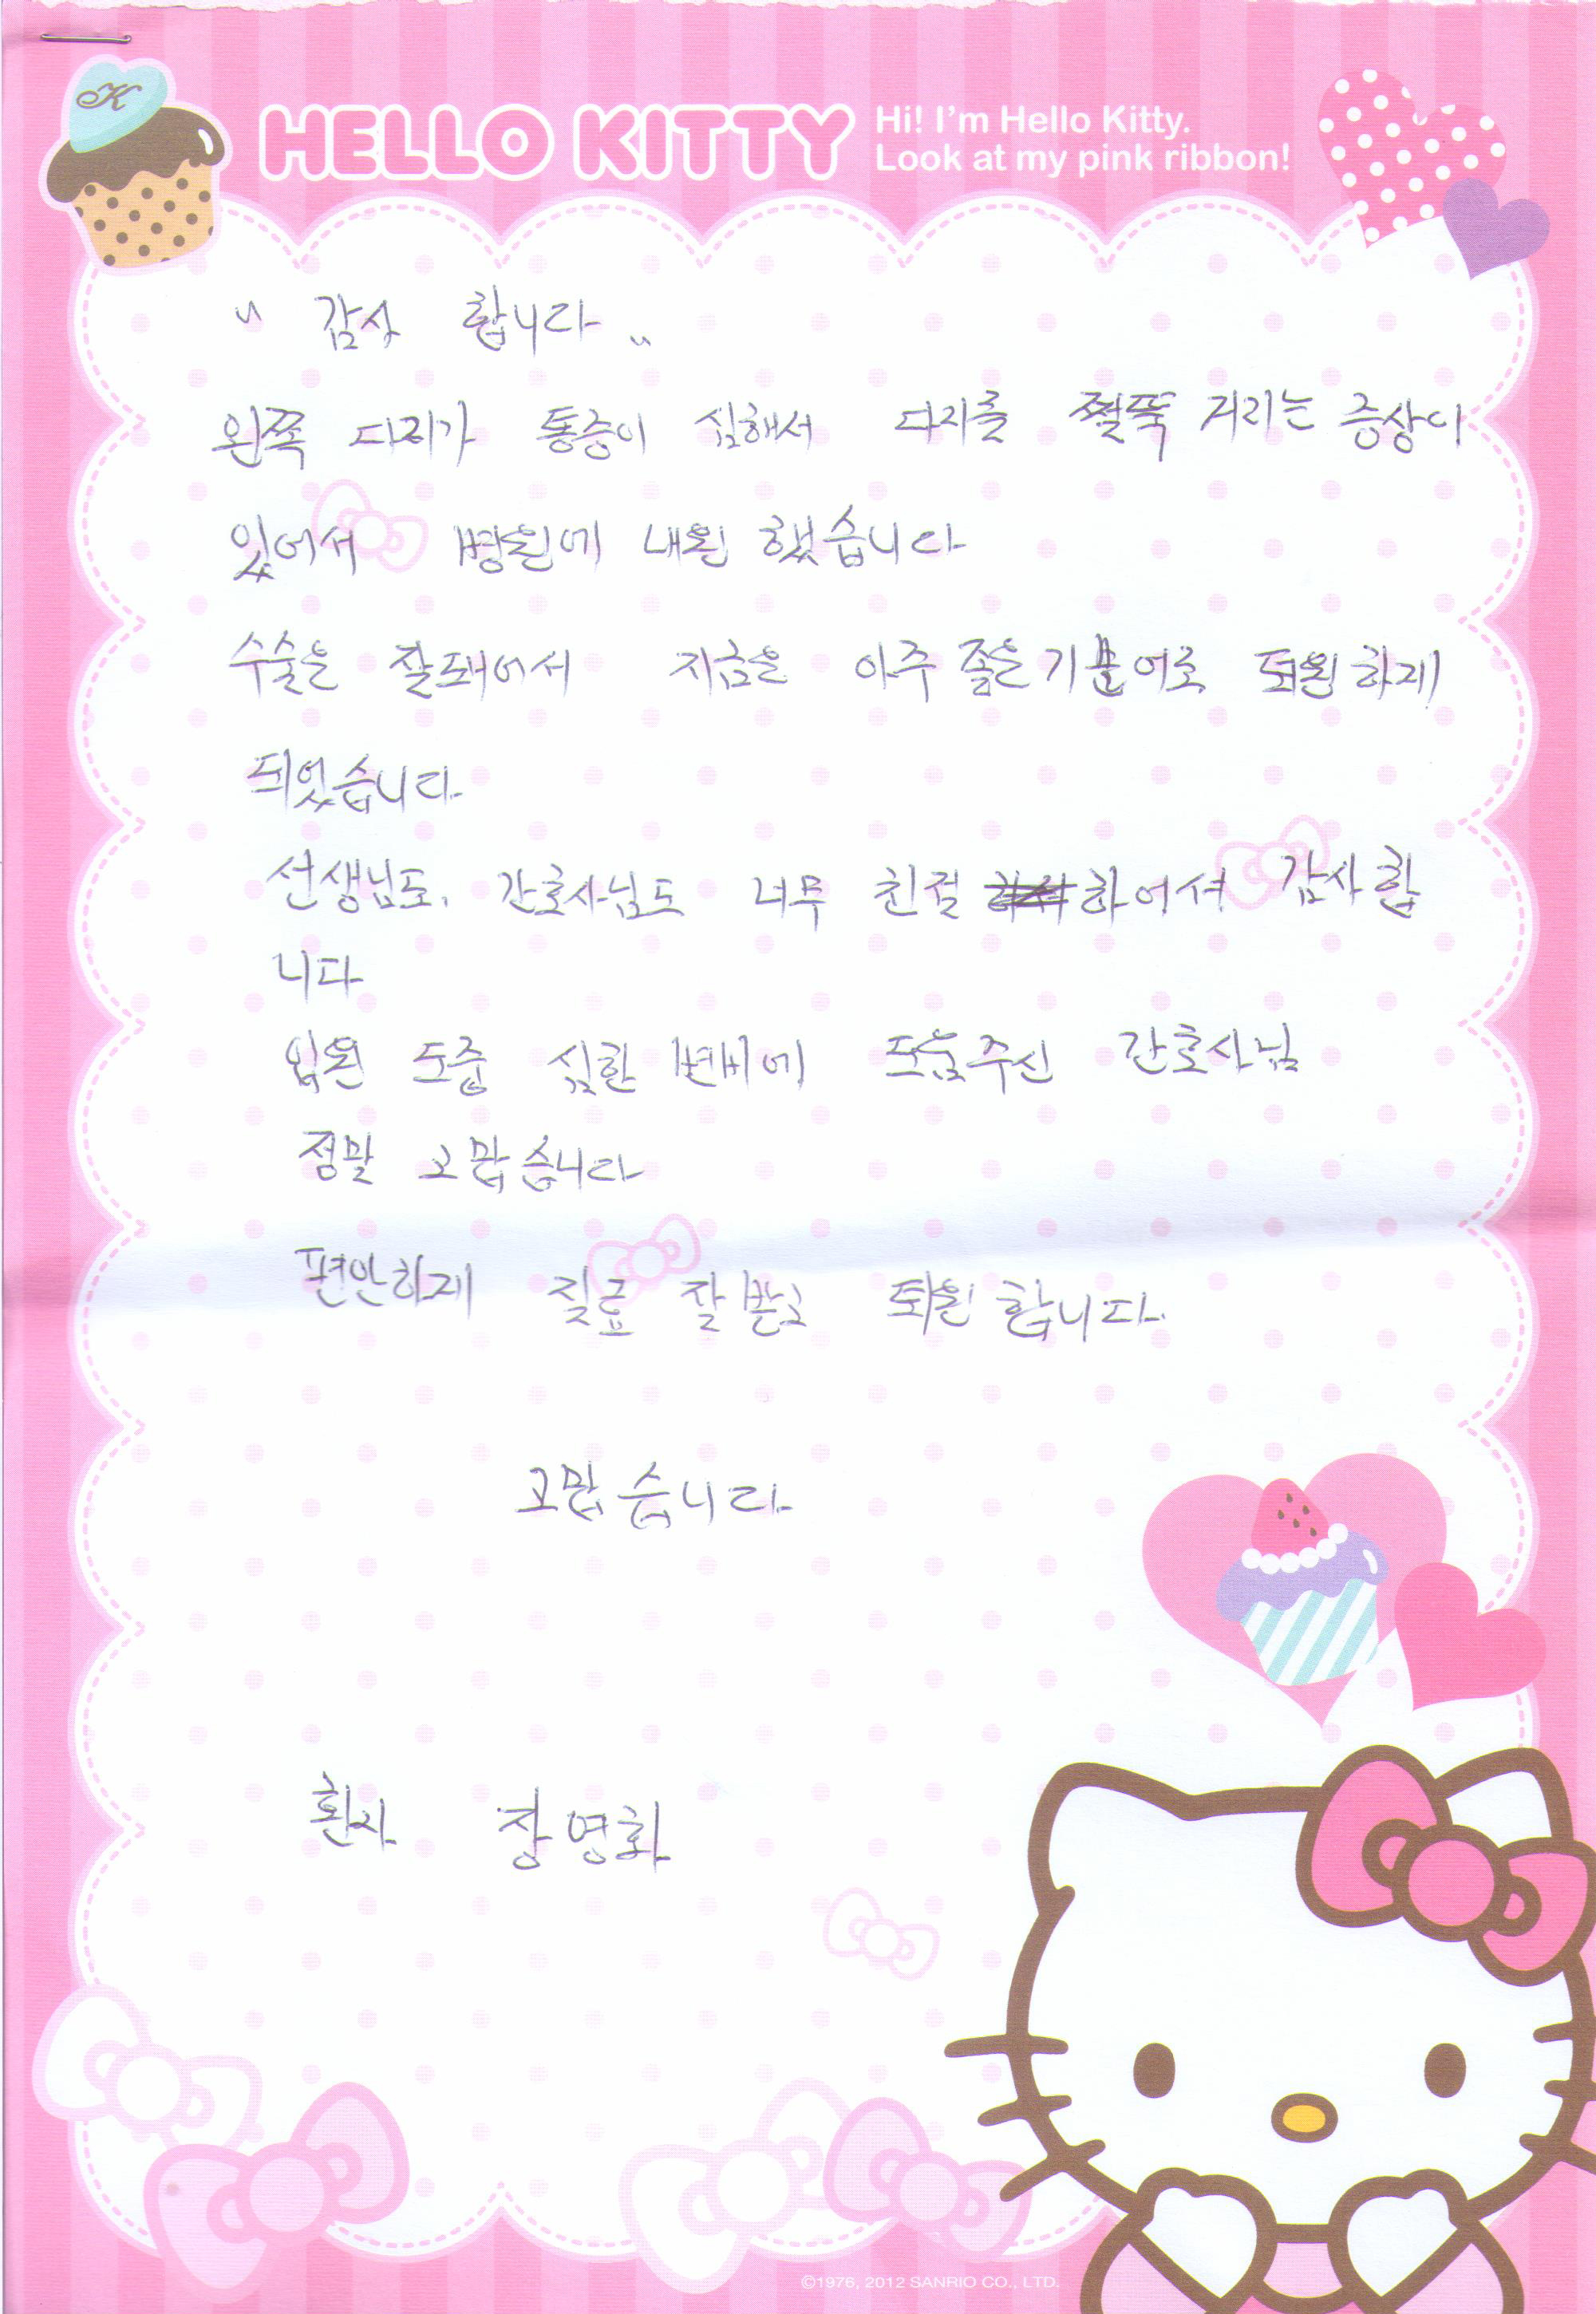 HELLO KITTY
Hi! I'm Hello Kitty.
Look at my pink ribbon!
K
" 감사 합니다 "
왼쪽 다리가 통증이 심해서 다리를 쩔뚝 거리는 증상이
있어서 병원에 내원 했습니다
수술은 잘돼어서 지금은 아주 좋은기분어로 퇴원하게
되었습니다.
선생님도, 간호사님도 너무 친절 하어셔 감사합
니다
입원 도중 심한 변비에 도움주신 간호사님
정말 고맙습니다
편안하게 질료 잘받고 퇴원합니다.
고맙습니다
환자 장영화
©1976, 2012 SANRIO CO., LTD.